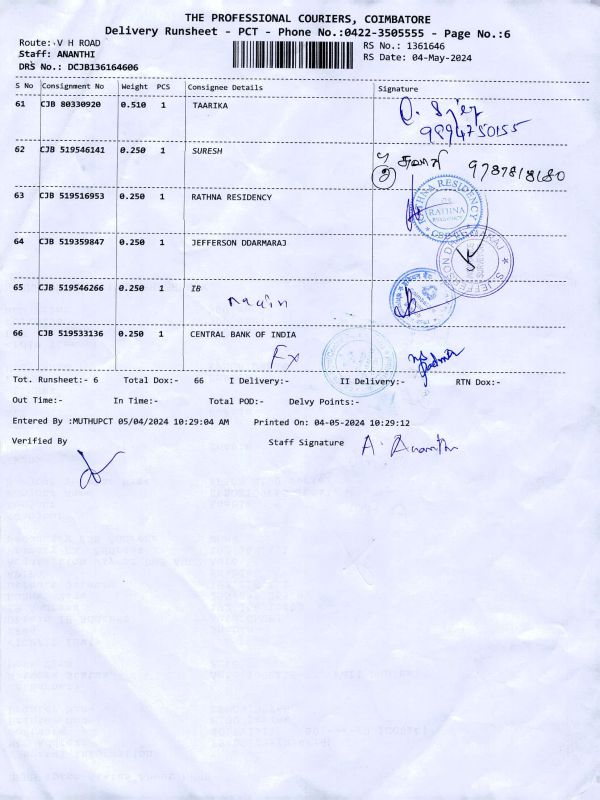 THE PROFESSIONAL COURIERS, COIMBATORE
Delivery Runsheet - PCT - Phone No.:0422-3505555 - Page No.:6
Route: V H ROAD
RS No.: 1361646
Staff: ANANTHI
RS Date: 04-May-2024
DRS No.: DCJB136164606
S No Consignment No Weight PCS Consignee Details Signature
61 CJB 80330920 0.510 1 TAARIKA
9894750155
62 CJB 519546141 0.250 1 SURESH
9787818180
63 CJB 519516953 0.250 1 RATHNA RESIDENCY
RATHNA RESIDENCY
RATHNA
64 CJB 519359847 0.250 1 JEFFERSON DDARMARAJ
65 CJB 519546266 0.250 1 IB
main
66 CJB 519533136 0.250 1 CENTRAL BANK OF INDIA
Fx
Tot. Runsheet:- 6 Total Dox:- 66 I Delivery:- II Delivery:- RTN Dox:-
Out Time:- In Time:- Total POD:- Delvy Points:-
Entered By :MUTHUPCT 05/04/2024 10:29:04 AM Printed On: 04-05-2024 10:29:12
Verified By Staff Signature A. Ananthi